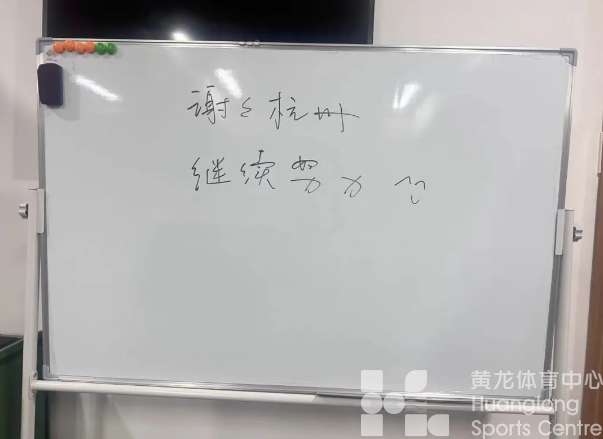 谢谢杭州
继续努力
黄龙体育中心
Huanglong
Sports Centre